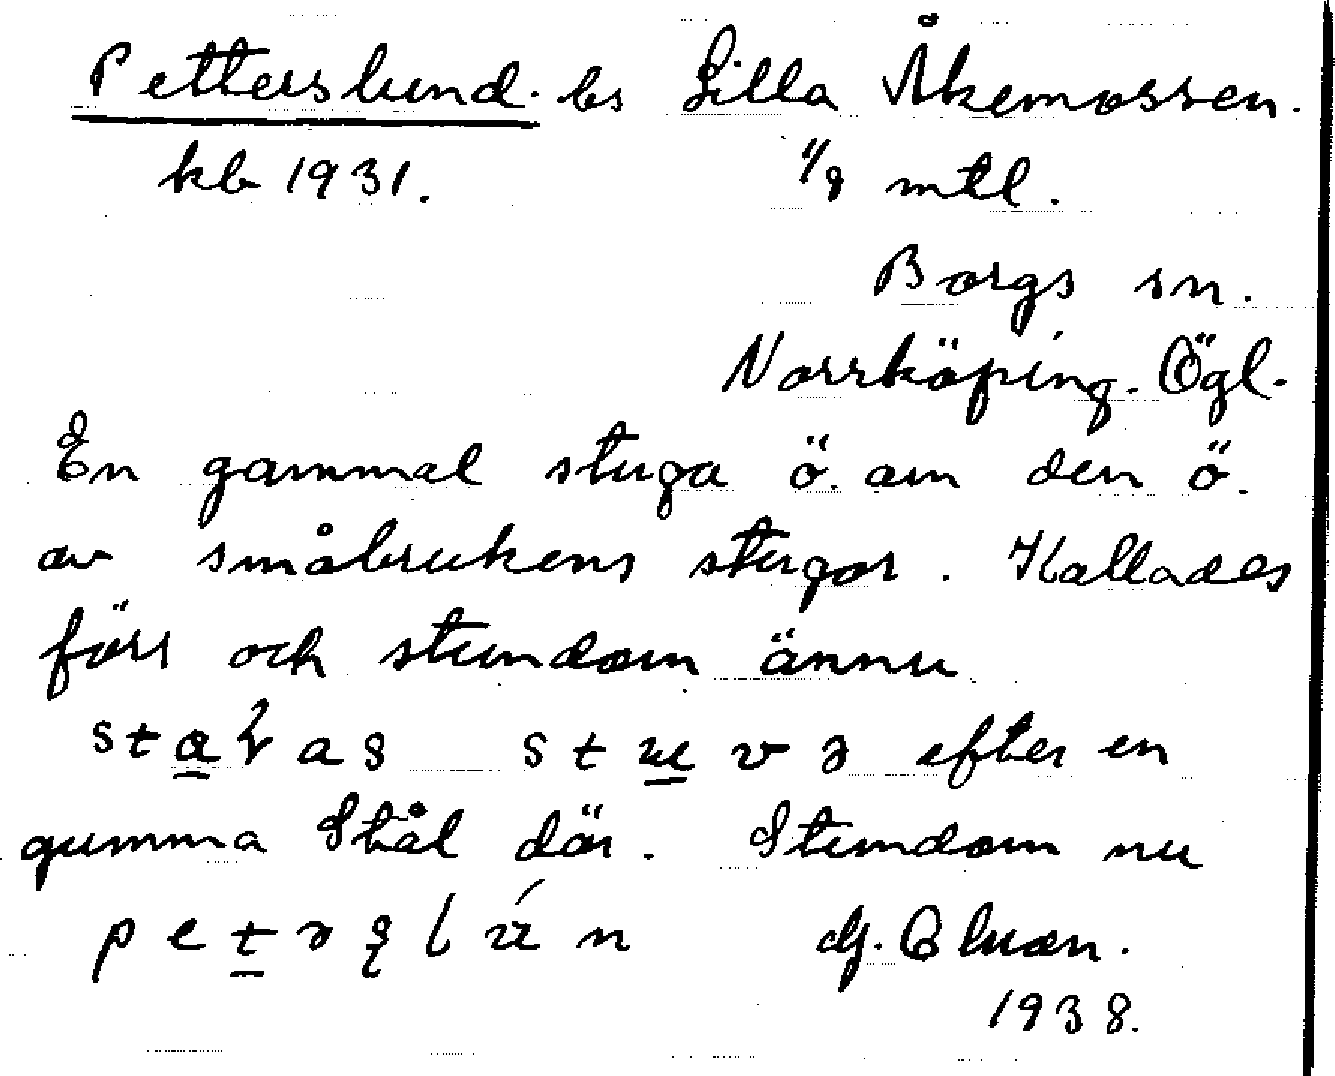 Petterslund. ls Lilla Åkemossen.
kb 1931. 1/8 mtl.
Borgs sn.
Norrköping. Ögl.
En gammal stuga ö. om den ö.
av småbrukens stugor. Kallades
förr och stundom ännu
efter en
gumma Stål där. Stundom nu
1938.